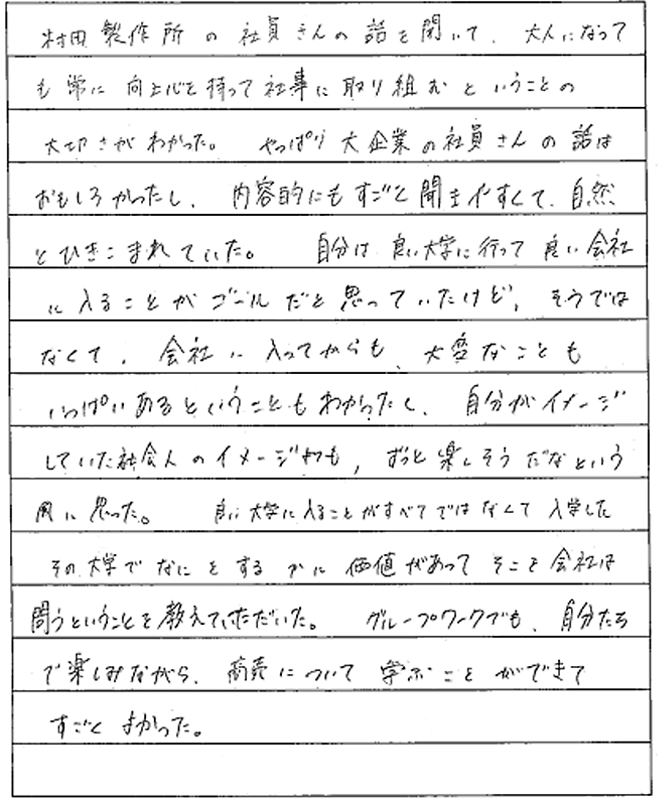 村田製作所の社員さんの話を聞いて、大人になって
も常に向上心を持って社事に取り組むということの
大切さがわかった。 やっぱり大企業の社員さんの話は
おもしろかったし、内容的にもすごく聞きやすくて、自然
とひきこまれていた。 自分は良い大学に行って良い会社
に入ることがゴールだと思っていたけど、そうでは
なくて、会社に入ってからも、大変なことも
いっぱいあるということもわかったし、自分がイメージ
していた社会人のイメージよりも、ずっと楽しそうだなという
風に思った。 良い大学に入ることがすべてではなくて入学した
その大学でなにをするかに価値があってそこを会社は
問うということを教えていただいた。 グループワークでも、自分たち
で楽しみながら、商売について学ぶことができて
すごくよかった。